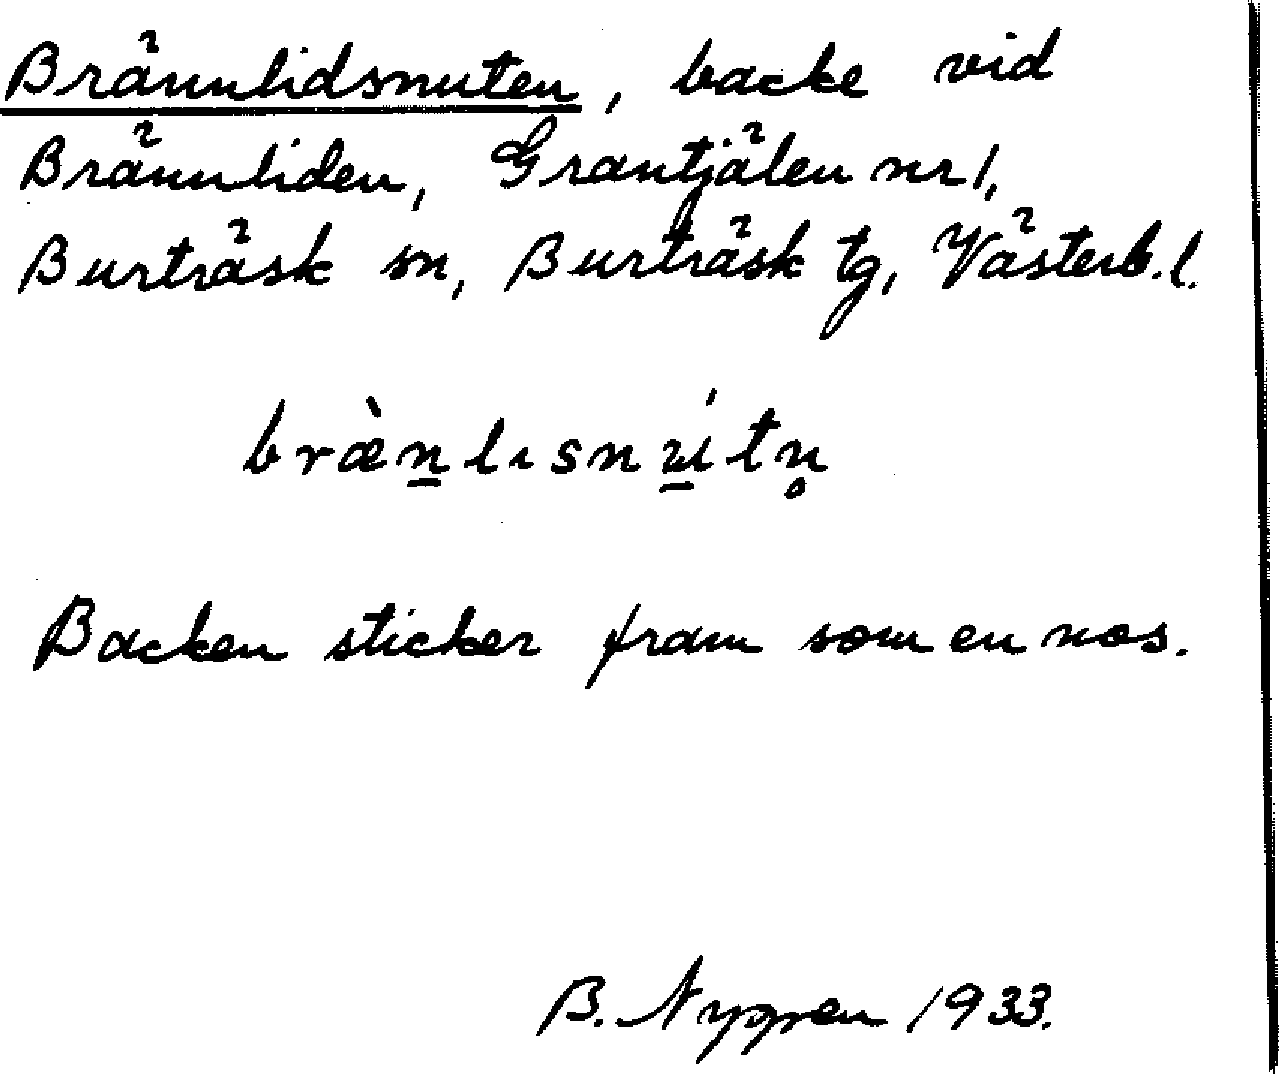 Brännlidsnuten, backe vid
Brännliden, Grantjälen nr 1,
Burträsk sn, Burträsk tg, Västerb.l.
bræ̀n̲lısnu̲ítn̥
Backen sticker fram som en nos.
B. Nygren 1933.